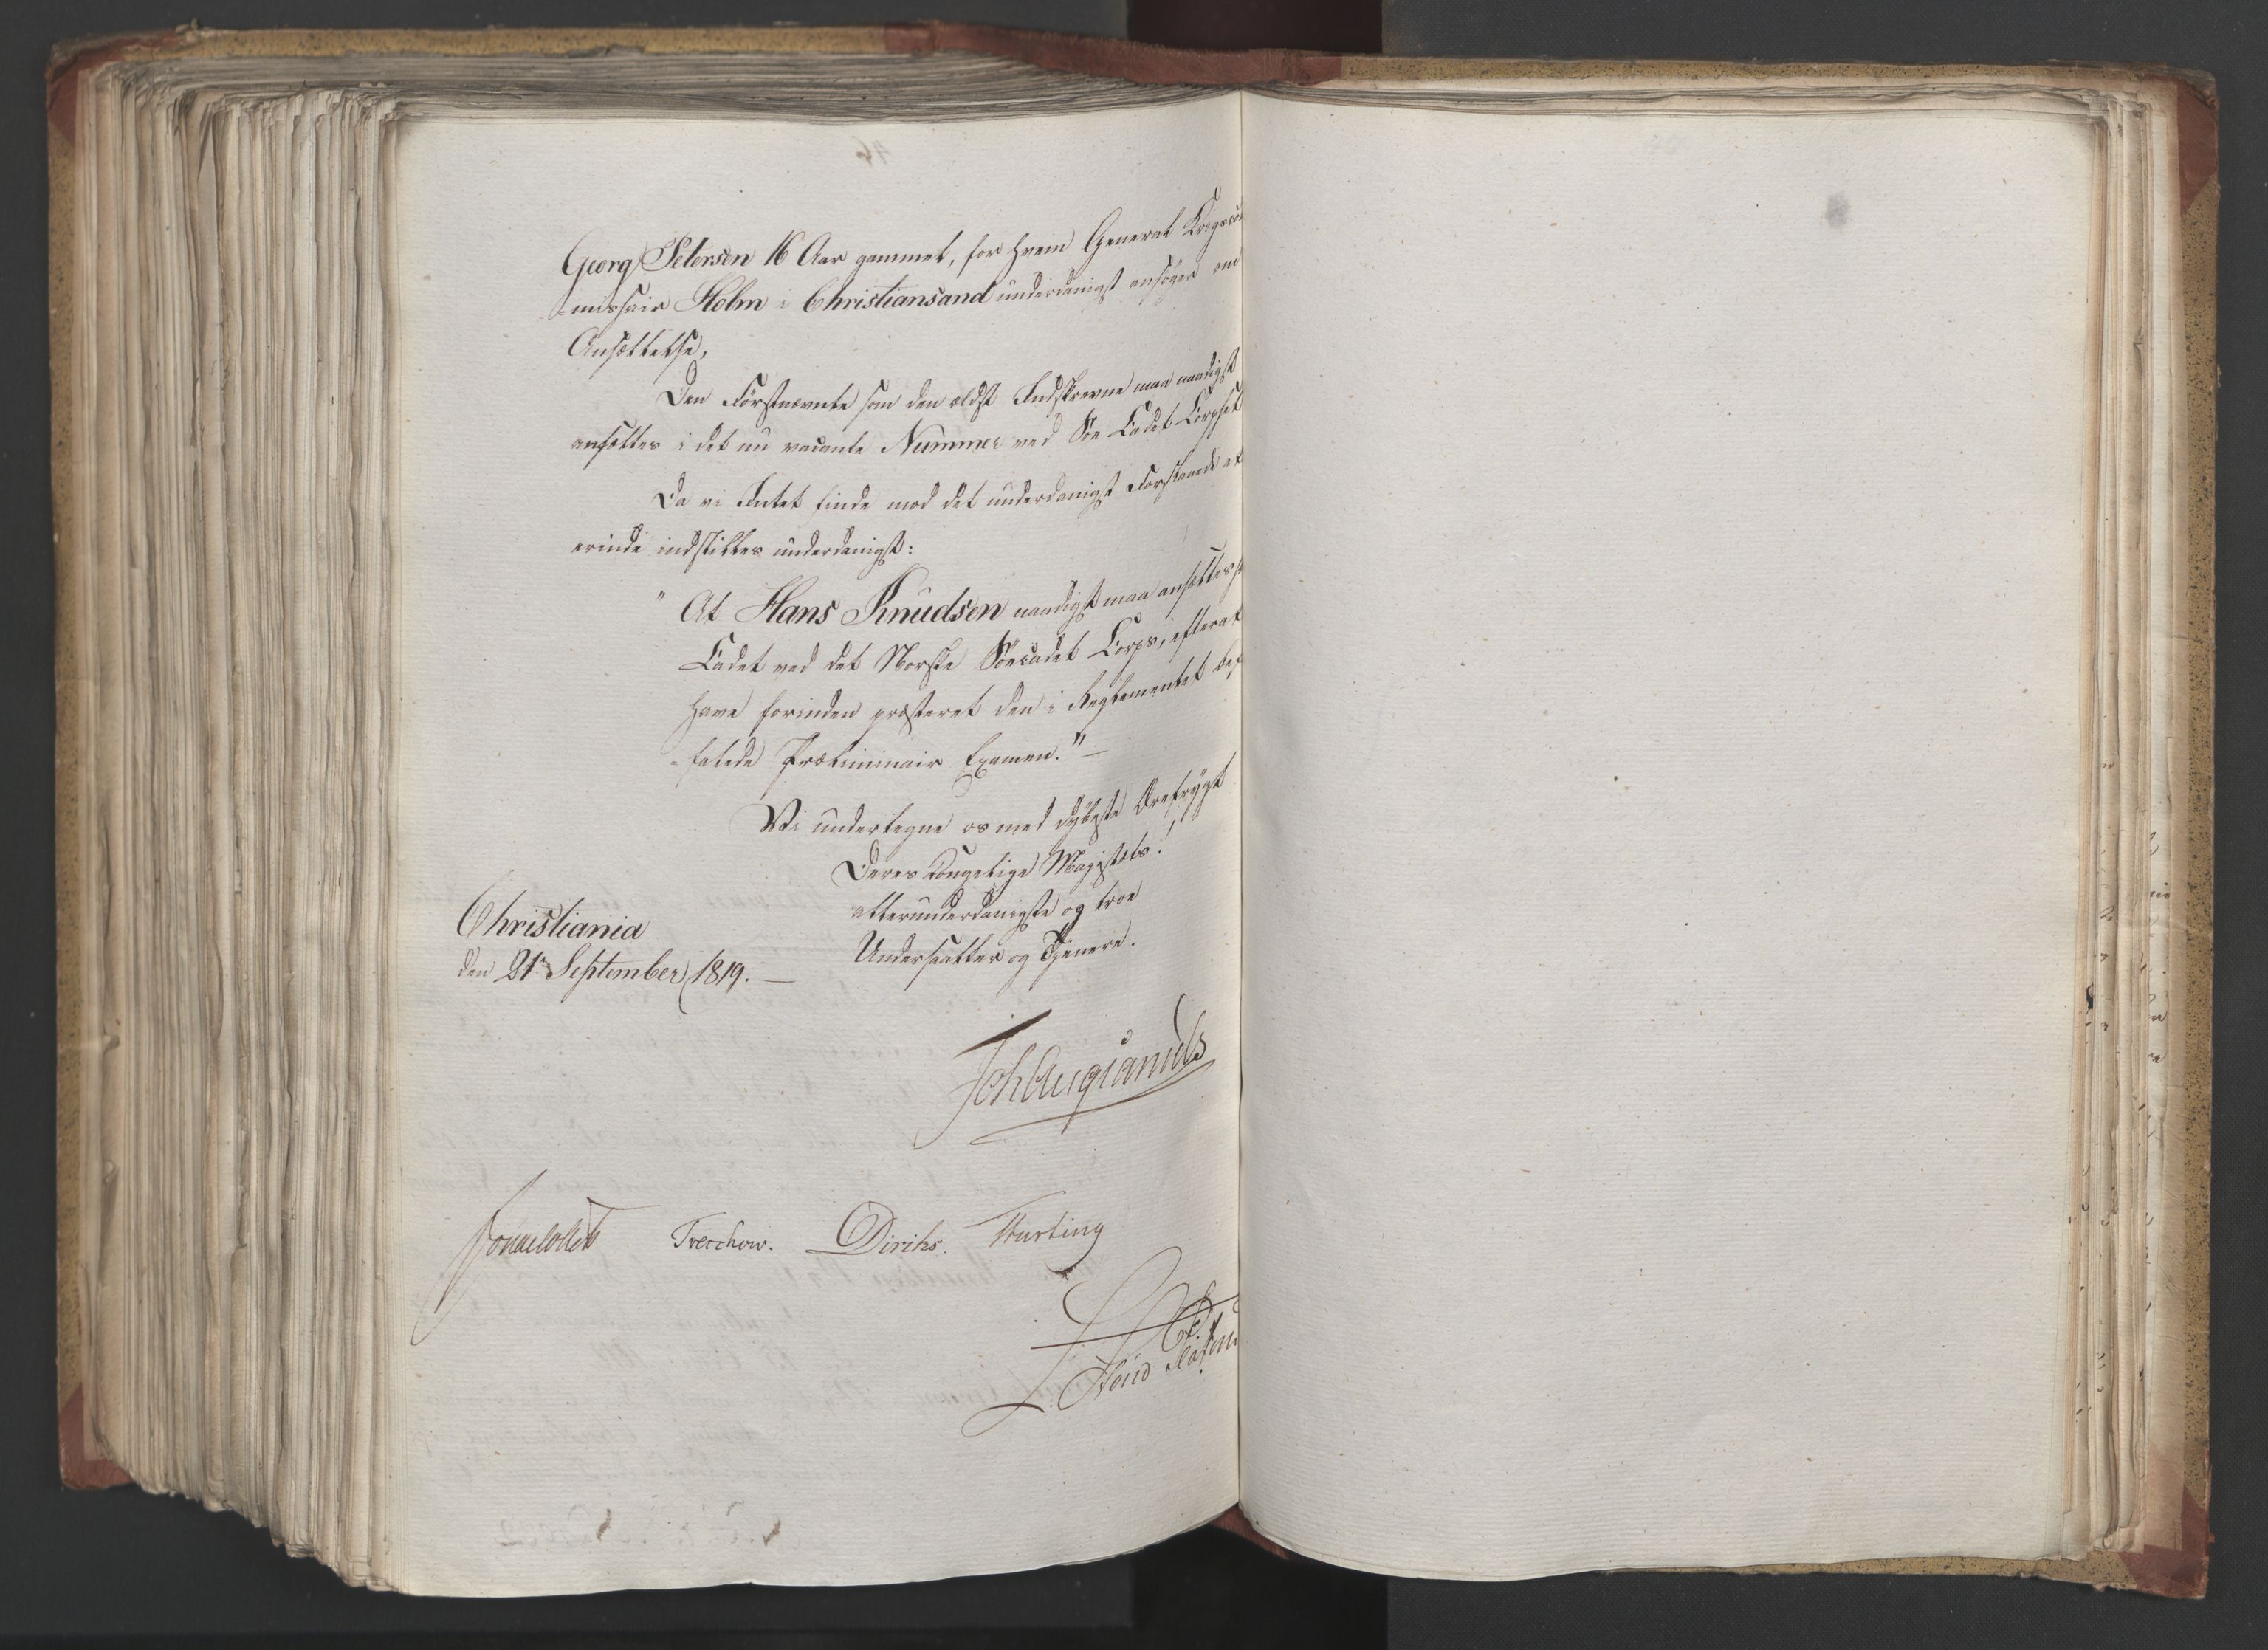 Georg Petersen 16 Aar gammel, for hvem General Krigscom
=missair Holm i Christiansand underdanigst ansøger om
Ansættelse,
Den Førstnævnte som den ældst Indskrevne maa naadigst
ansættes i det nu vacante Nummer ved Søe Cadet Corpset
Da vi Intet finde mod det underdanigst Forestaaende at
erindre indstilles underdanigst:
"At Hans Knudsen naadigst maa ansættes som
Cadet ved det Norske Søecadet Corps, efterat
have forinden præsteret den i Reglementet be=
=falede Præliminair Examen."—
Vi undertegne os med dybeste Ærefrygt
Deres Kongelige Majestæts!
allerunderdanigste og troe
Undersaatter og Tjenere.
Christiania
den 21de September 1819.—
JohAugSandels
Sommerhielm Treschow. Diriks. Fasting